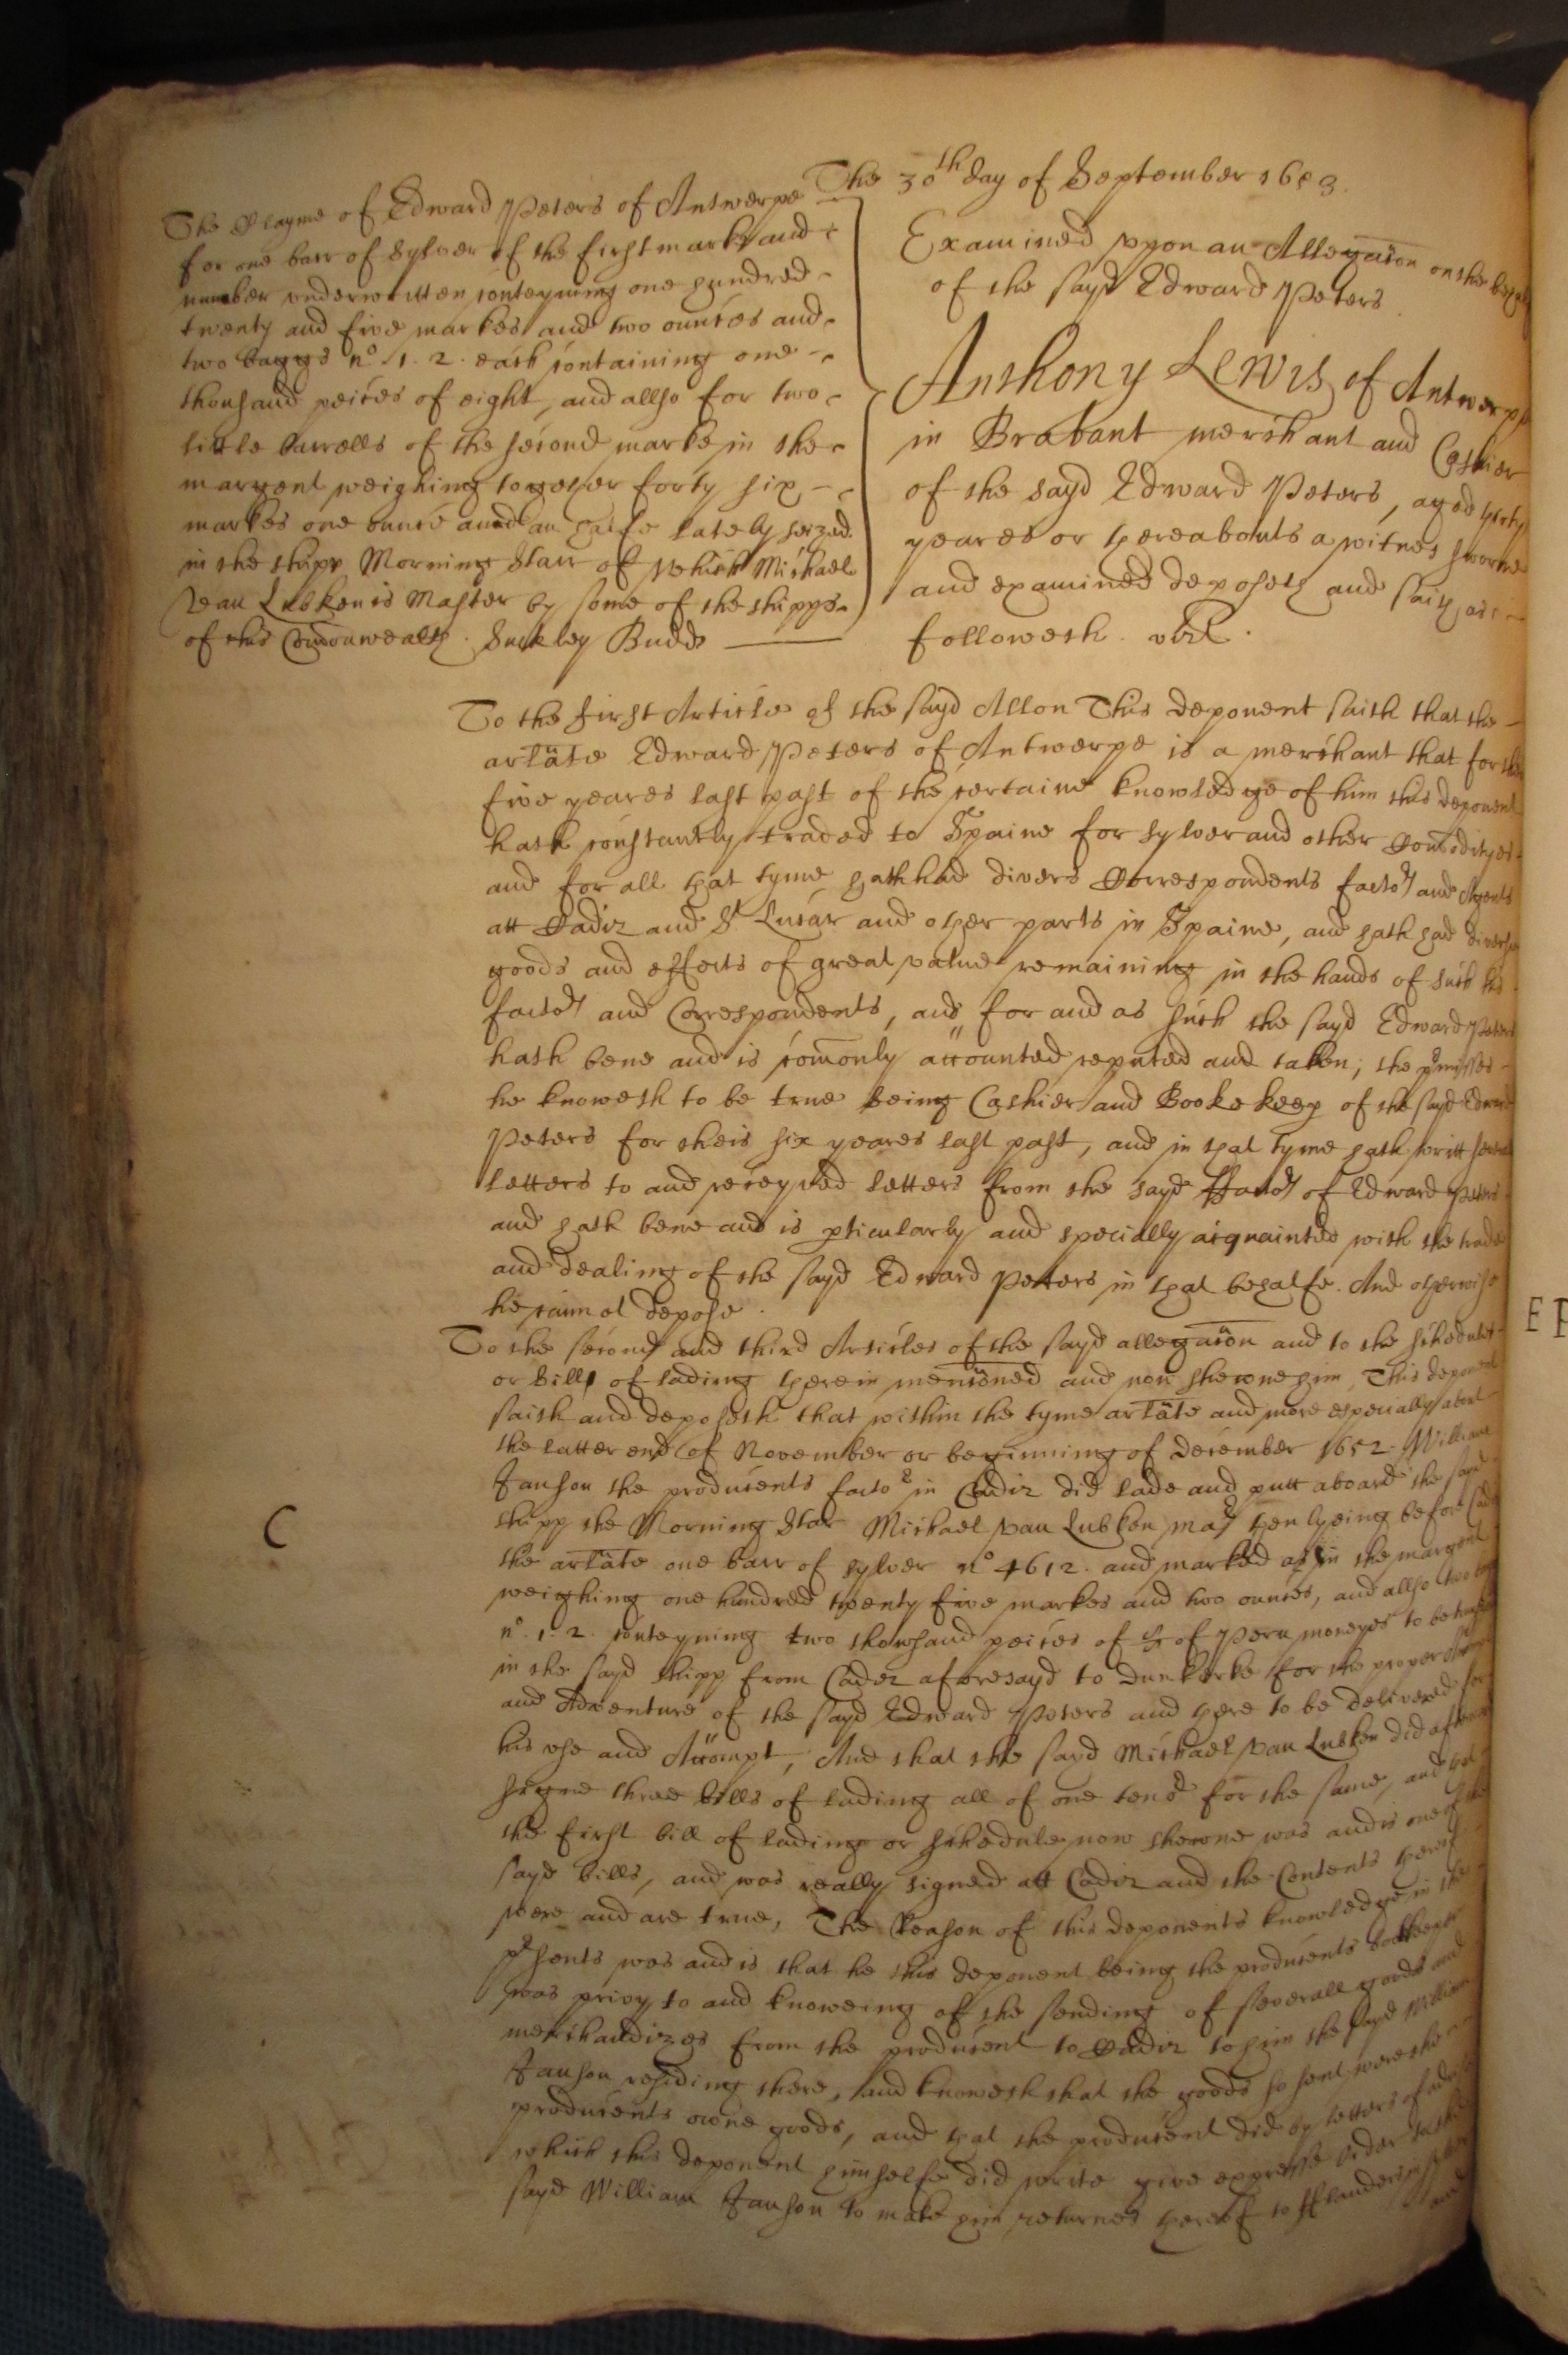 The 30th day of September 1653.
The Clayme of Edward Peters of Antwerpe
for one barr of sylver of the first marke and
number underwritten conteyning one hundred
twenty and five markes and two ounces and
two baggs no. 1. 2. each containing one
thousand peices of eight, and allso for two
little barrells of the second marke in the
margent weighing together forty six
markes one ounce and an halfe lately seized
in the shipp Morning Starr of which Michael
van Lubken is Master by some of the shipps
of this Comonwealth. Suckley Budd
Examined upon an Allegacon on the behalfe
of the sayd Edward Peters
Anthony Lewis of Antwerpe
in Brabant merchant and Cashier
of the sayd Edward Peters, aged
yeares or thereabouts a witnes sworne
and examined deposeth and saith as
followeth. vizt.
To the first Article of the sayd Allon This deponent saith that the
arlate Edward Peters of Antwerpe is a merchant that for
five yeares last past of the certaine knowledge of him this deponent
hath constantly traded to Spaine for sylver and other Comodityes
and for all that tyme hath had divers Correspondents factors and Agents
att Cadiz and St Lucar and other parts in Spaine, and hath had divers
goods and effects of great value remaining in the hands of such his
factors and Correspondents, and for and as such the sayd Edward Peters
hath bene and is comonly accounted reputed and taken; the pmisses
he knoweth to be true being Cashier and Bookekeep of the sayd Edward
Peters for theis six yeares last past, and in that tyme hath writt severall
letters to and receyved letters from the sayd ffactors of Edward Peters
and hath bene and is pticularly and specially acquainted with the trade
and dealing of the sayd Edward Peters in that behalfe. And otherwise
he cannot depose.
To the second and third Articles of the sayd allegacon and to the schedule
or bill of lading therein menconed and now shewne him, This deponent
saith and deposeth that within the tyme arlate and more especially about
the latter end of November or beginning of december 1652. William
Janson the producents factor in Cadiz did lade and putt aboard the sayd
shipp the Morning Star Michael van Lubken mar then lyeing before
the arlate one barr of sylver no 4612. and marked as in the margent
weighing one hundred twenty five markes and two ounces, and allso two baggs
no. 1. 2. conteyning two thowsand peices of 8 of Peru moneyes to be
in the sayd shipp from Cadez aforesayd to Dunkerke for the proper
and Adventure of the sayd Edward Peters and there to be delivered for
his use and Accompt, And that the sayd Michael van Lubken did
signe three bills of lading all of one tenor for the same, and that
the first bill of lading or schedule now shewne was and is one of the
sayd bills, and was really signed att Cadiz and the Contents thereof
were and are true, The Reason of this deponents knowledge in the
psents was and is that he this deponent being the producents
was privy to and knoweing of the sending of severall goods and
merchandizes from the producent to Cadiz to him the sayd William
Janson residing there, and knoweth that the goods so sent were the
producents owne goods, and that the producent did by letters of advise
which this deponent himselfe did write give expresse order to the
sayd William Janson to make him returnes thereof to fflanders
and
C